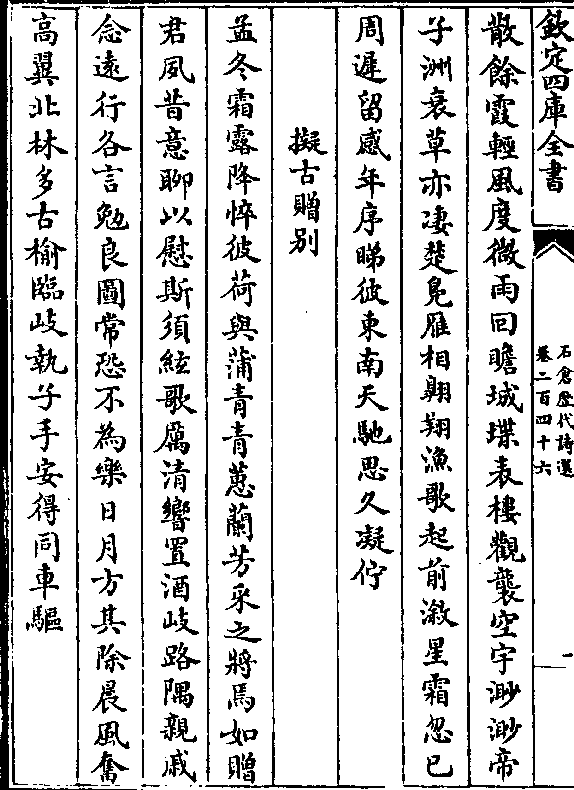 欽定四庫全書
石倉歷代詩選
卷二百四十六
一
散餘霞輕風度微雨回瞻城堞表樓觀襲空宇渺渺帝
子洲衰草亦凄楚鳬雁相翺翔漁歌起前漵星霜忽已
周遲留感年序睇彼東南天馳思久凝佇
擬古贈别
孟冬霜露降悴彼荷與蒲青青蕙蘭芳采之將焉如贈
君夙昔意聊以慰斯須絃歌厲清響置酒岐路隅親戚
念遠行各言勉良圖常恐不為樂日月方其除晨風奮
高翼北林多古榆臨岐執子手安得同車驅